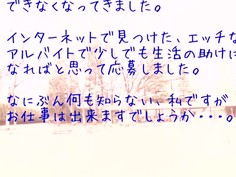 できなくなってきました。
インターネットで見つけた、エッチな
アルバイトで少しでも生活の助けに
なればと思って応募しました。
なにぶん何も知らない、私ですが
お仕事は出来ますでしょうか・・・。